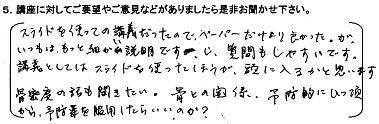 5. 講座に対してご要望やご意見などがありましたら是非お聞かせ下さい。
スライドを使っての講義だったので、ペーパーだけより良かった。が、
いつもは、もっと細かい説明ですし、質問もしやすいです。
講義としてはスライドを使ったほうが、頭に入るかと思います
骨密度の話も聞きたい。骨との関係、予防的にいつ頃
から、予防薬を服用したらいいのか?